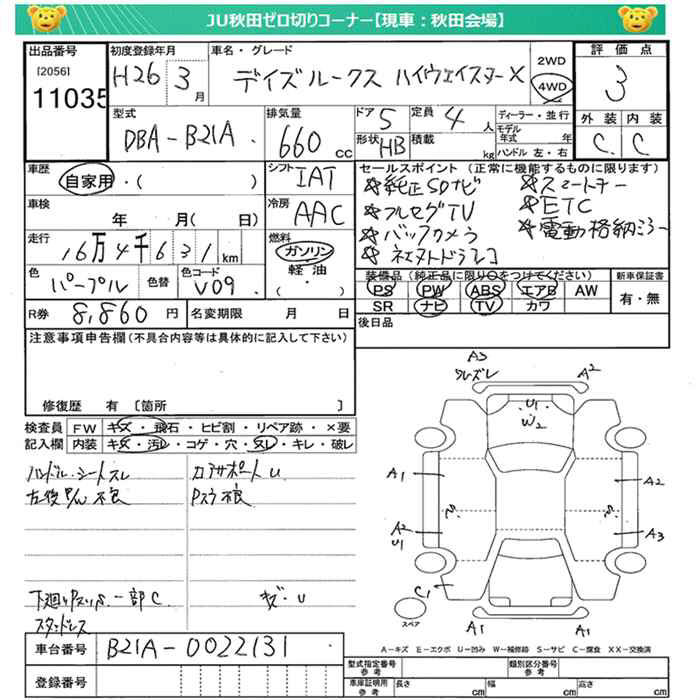 JU秋田ゼロ切りコーナー【現車：秋田会場】
出品番号 初度登録年月 車名・グレード 2WD 評価点
[2056] H26 3月 デイズルークス ハイウェイスターX 4WD 3
11035
型式 排気量 ドア 5 定員 4人 ディーラー・並行 外装 内装
DBA-B21A 660cc 形状 HB 積載 kg モデル年式 年 C C
ハンドル 左・右
車歴 シフト IAT セールスポイント（正常に機能するものに限ります）
自家用・( ) ☆純正SDナビ ☆スマートキー
車検 冷房 AAC ☆フルセグTV ☆ETC
年 月( 日) ☆バックカメラ ☆電動格納ミラー
走行 16万4千631km 燃料 ガソリン ☆ネオストドラレコ
軽油・( )
色 パープル 色替 色コード V09 装備品（純正品に限り○をつけてください） 新車保証書
PS PW ABS エアB AW 有・無
SR ナビ TV カワ
R券 8,860円 名変期限 月 日 後日品
注意事項申告欄（不具合内容等は具体的に記入して下さい）
修復歴 有 〔箇所 〕
検査員 FW キズ・飛石・ヒビ割・リペア跡・×要
記入欄 内装 キズ・汚レ・コゲ・穴・スレ・キレ・破レ
ハンドル・シートスレ コアサポートU
左後 不良 Pスラ不良
下廻り 一部C キズ・U
スタッドレス
A3 ズレ A2
U1
W2
A1 A2
A2 U1 A3
C1
A1 A1
スペア
A-キズ E-エクボ U-凹み W-補修跡 S-サビ C-腐食 XX-交換済
車台番号 B21A-0022131
登録番号
型式指定番号 参考 類別区分番号 参考
車庫証明用 参考 長さ cm 幅 cm 高さ cm